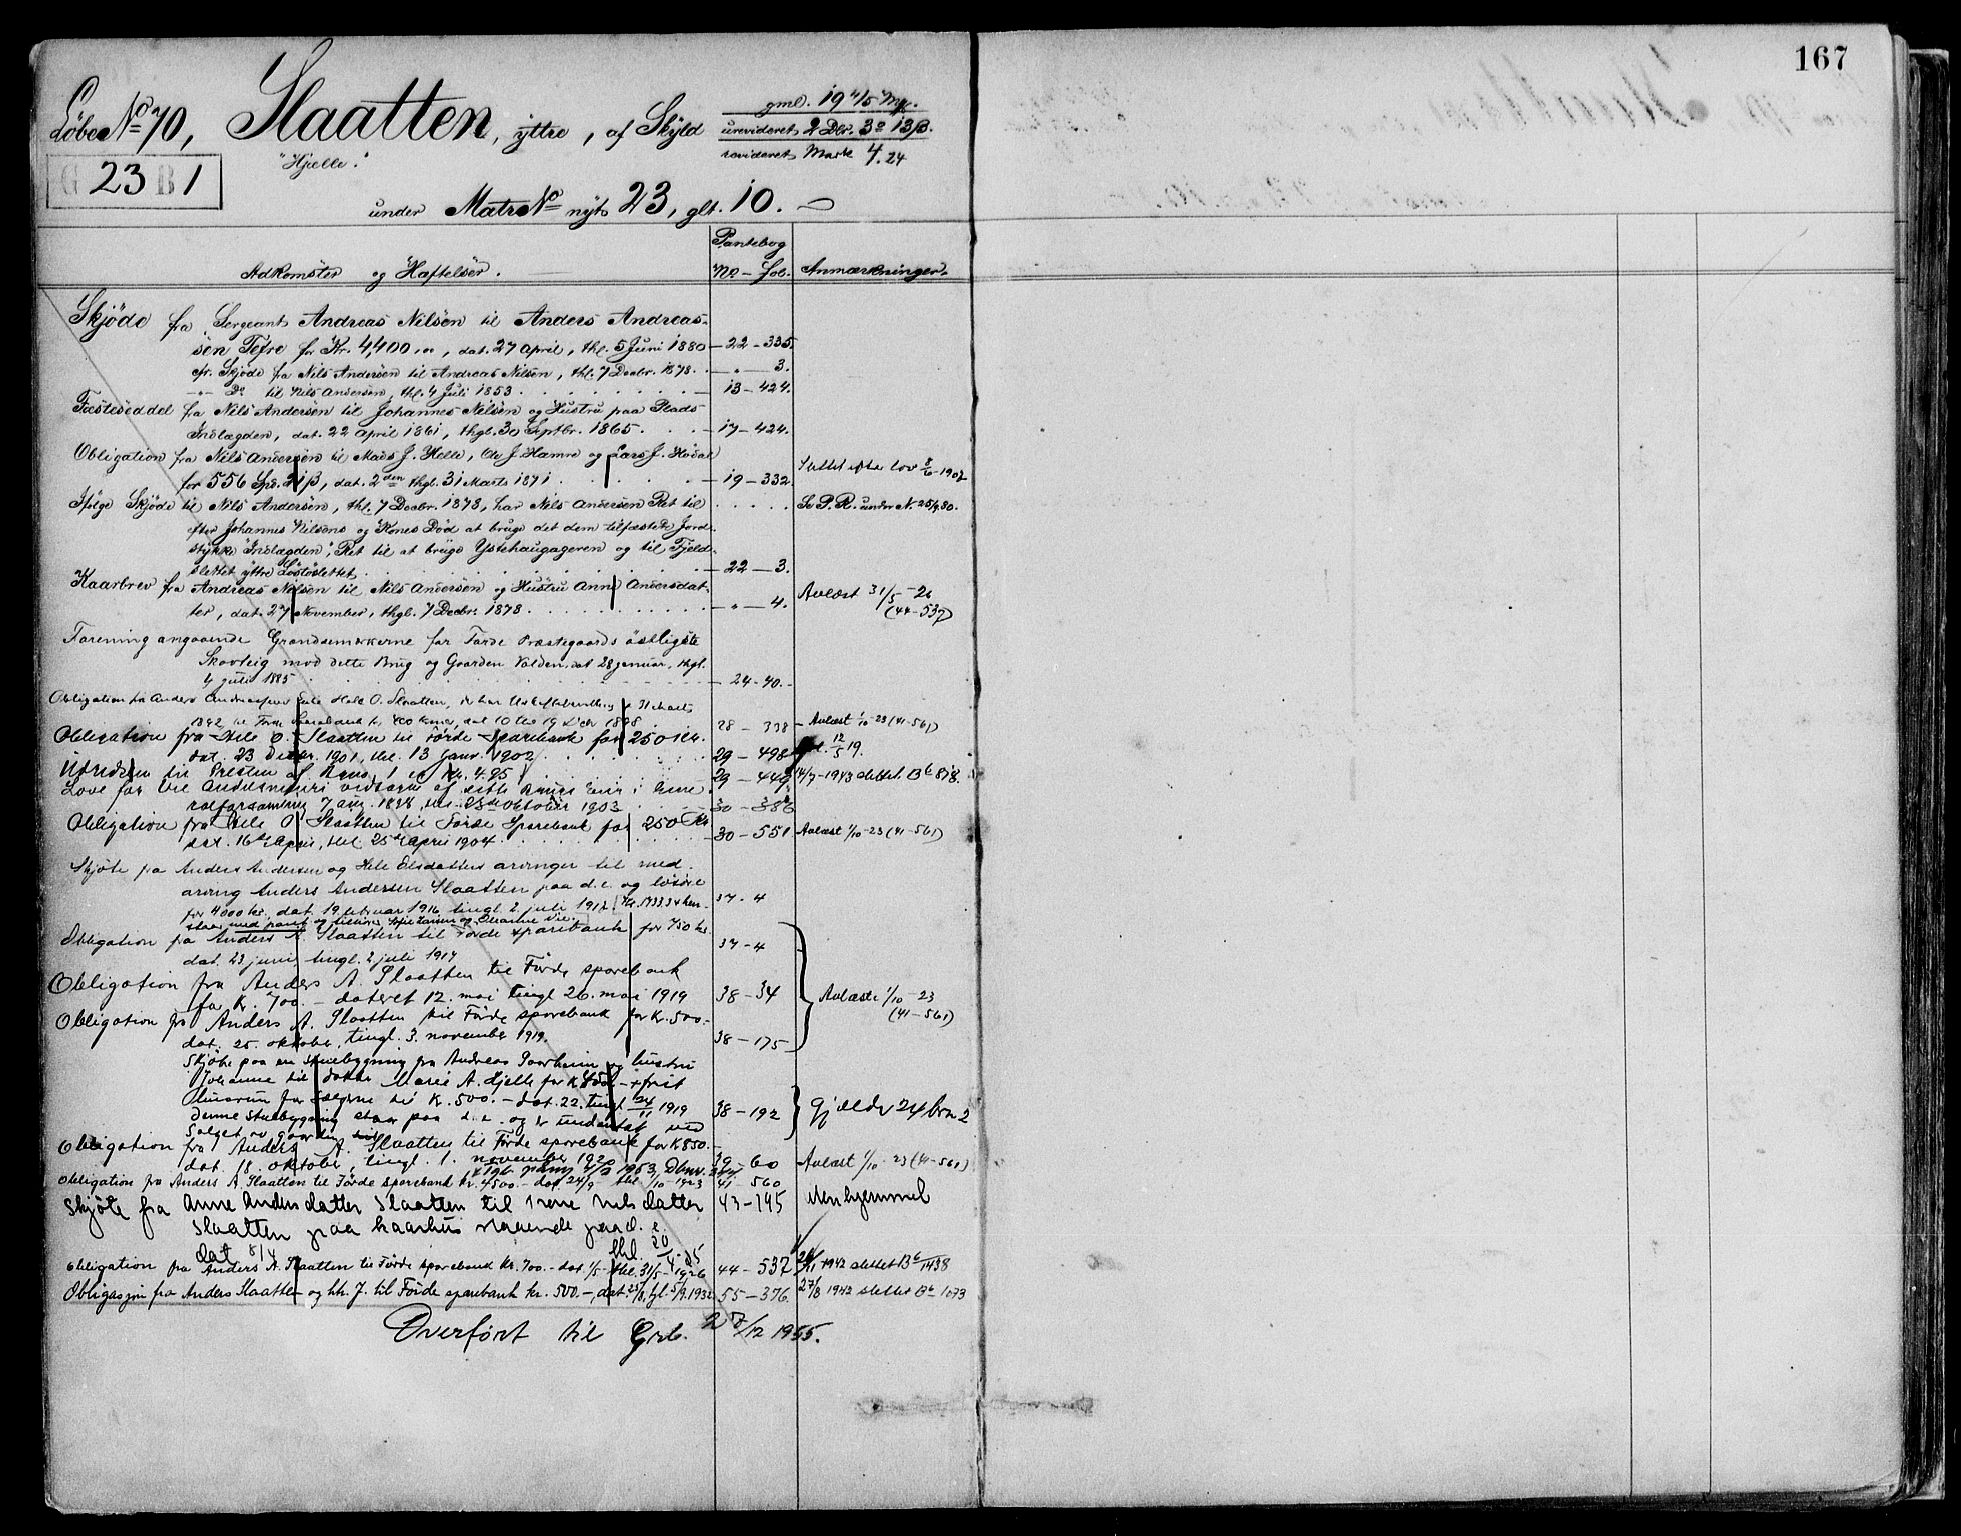 167
Løbe No 70, Slaatten, yttre, af Skyld
gml. 19 4/5 Mk.
urevideret 2 Dlr. 3 o 13 β.
revideret Mark 4.24
"Hjelle."
G 23 B 1
under Matr No nyt 23, glt. 10.
Pantebog
Adkomster og Hæftelser. No. – Fol. Anmærkninger.
Skjöde fra Sergeant Andreas Nilsen til Anders Andreas-
sen Tefre for Kr. 4,400, dat. 27 April, thl. 5 Juni 1880 – 22 – 335.
cfr. Skjöde fra Nils Andersen til Andreas Nilsen, thl. 7 Decbr. 1878. – „ – 3.
– „ – Do til Nils Andersen, thl. 4 Juli 1853 – 13 – 424.
Fæsteseddel fra Nils Andersen til Johannes Nilsen og Hustru paa Plads
Indlægden, dat. 22 April 1861, thgl. 30 Septbr. 1865. – 17 – 424.
Obligation fra Nils Andersen til Mads J. Helle, Ole J. Hamre og Lars J. Hodal
for 556 Spd. 21 β, dat. 2den thgl. 31 Marts 1871 – 19 – 332 Slettet efter Lov 8/6 – 1907
Ifölge Skjöde til Nils Andersen, thl. 7 Decbr. 1878, har Nils Andersen Ret til Se P. R. under N. 25/9 80.
efter Johannes Nilsens og Kones Död at bruge det dem tilfæstede Jord-
stykke "Indlægden", Ret til at bruge Ystehaugageren og til Fjeld-
slettet yttre Löstöslettet – 22 – 3.
Kaarbrev fra Andreas Nilsen til Nils Andersen og Hustru Anne Andersdat-
ter, dat. 27 November, thgl. 7 Decbr. 1878 – „ – 4. Avlæst 31/5 – 26
(44–537)
Forening angaaende Grændsemerkerne for Förde Præstegaards östligste
Skovteig mod dette Brug og Gaarden Halden, dat 28 januar, thgl.
4 juli 1885 – 24 – 40.
Obligation fra Anders Andreassens Enke Hele O. Slaatten, der har Uskifte 31 Marts
1892 til Förde Sparebank for 400 kroner, dat 10 thl 19 Decbr 1898 28 – 338 – Avlæst 1/10 – 23 (41–561)
Obligation fra Hele O. Slaatten til Förde Sparebank for 250 Kr.
dat. 23 Decbr. 1901, thl. 13 Janr. 1902 29 – 498 12/5 19.
Udredsen til Presten af Brno. 1 er Kr. 4.95 29 – 449 14/7 – 1943 slettet. Bb 878.
7 aug. 1898, thl. 23de Oktober 1903 30 – 386
Obligation fra Hele O. Slaatten til Förde Sparebank for 250 Kr
dat. 16de April, thl. 25de April 1904 30 – 551 Avlæst 1/10 – 23 (41–561)
Skjöte fra Anders Andersen og Hele Olsdatters arvinger til med-
arving Anders Andersen Slaatten paa d. e. og lösöre
for 4000 kr., dat. 19 februar 1916, tingl. 2 juli 1917 37 – 4
Obligation fra Anders A. Slaatten til Förde sparebank for 750 kr. 37 – 4
dat. 23 juni, tingl. 2 juli 1917
Obligation fra Anders A. Slaatten til Förde sparebank
for K. 700. – dateret 12. mai tingl 26. mai 1919 38 – 34 Avlæste 1/10 – 23
(41–561)
Obligation fra Anders A. Slaatten til Förde sparebank for K. 500.–
dat. 25. oktober, tingl. 3. november 1919. 38 – 175
Skjöte paa en stuebygning fra Andreas Paarheim og hustru
Johanne til datter Marie A. Hjelle for K 850.– + frit
Husrum for sælgerne til K. 500. – dat. 22. tingl 24/11 1919 38 – 192 Gjælder 24 brn 2
Denne stuebygning staar paa d. e. og er undtat ved
salget av gaarden
Obligation fra Anders A. Slaatten til Förde sparebank for K 850.–
dat. 18. oktober, tingl. 1. november 1920 39 – 60 Avlæst 1/10 – 23 (41–561)
Obligation fra Anders A. Slaatten til Förde sparebank kr. 4500.– dat 24/9 thl 1/10 – 1923 41 – 560
Skjöte fra Anne Andersdatter Slaatten til Irene Nilsdatter 43 – 195 Uten hjemmel
Slaatten paa kaarhus staaende paa d. e.
dat 8/4 thl. 20/4 – 25
Obligation fra Anders A. Slaatten til Förde sparebank kr. 700.– dat. 1/5 – thl. 31/5 – 1926 44 – 537 1942 slettet Bb 1438
Obligasjon fra Anders Slaatten og hh. J. til Förde sparebank kr. 500.–, dat. 29/8, tgl. 5/9. 1932 55 – 376 27/8 1942 slettet Bb 1073
Overført til Grb. 28/12 1955.